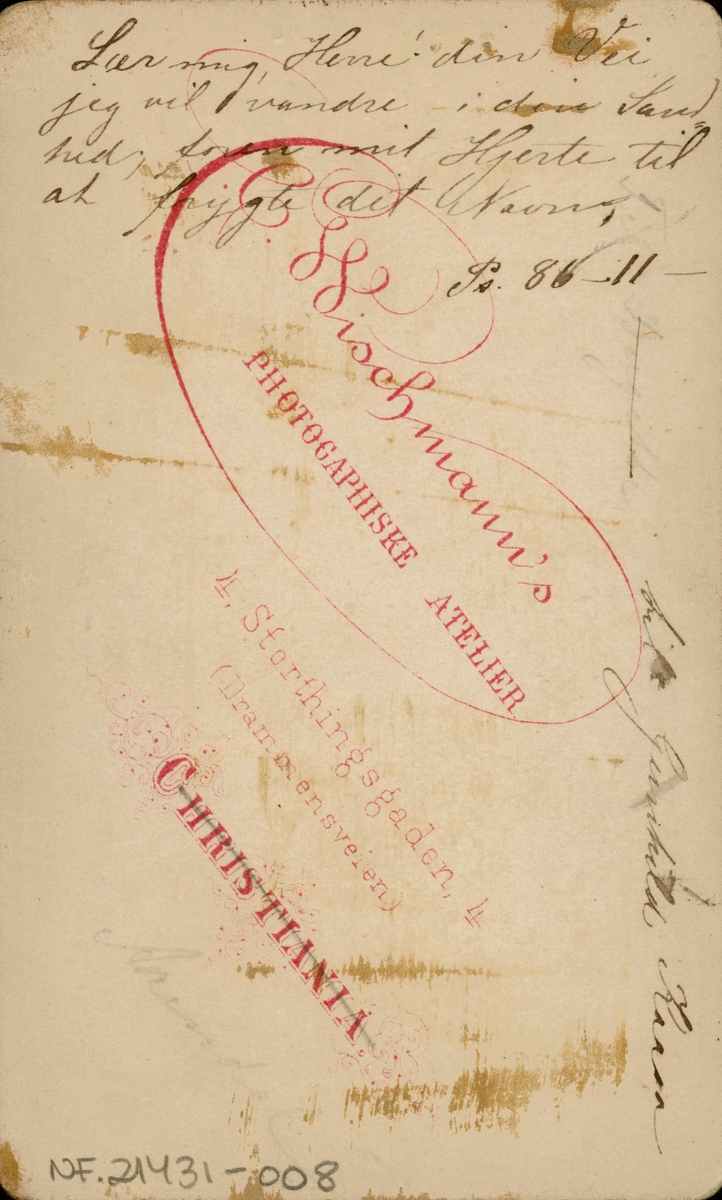 Lær mig, Herre! din Vei
jeg vil vandre i din Sand=
hed; foren mit Hjerte til
at frygte dit Navn,
Ps. 86-11-
E. Wischmann's
PHOTOGAPHISKE ATELIER
4, Storthingsgaden, 4
(Drammensveien)
CHRISTIANIA
Gunhild
NF.21431-008